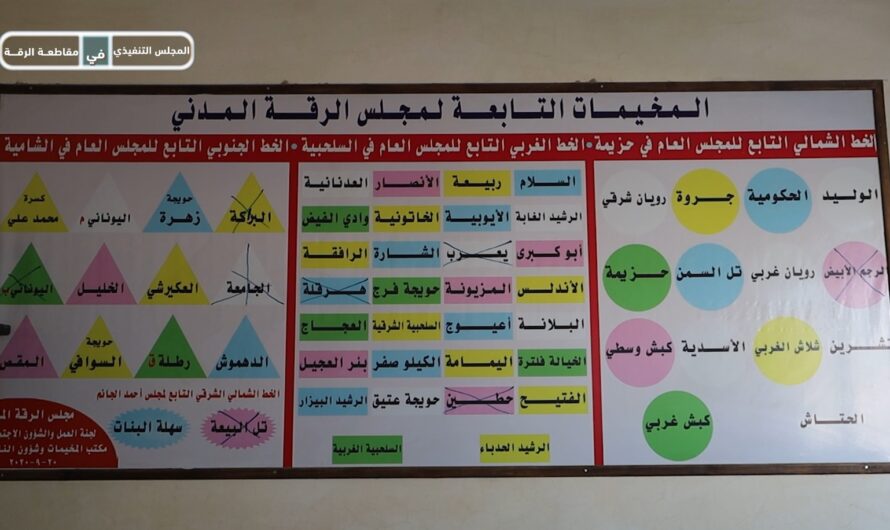 المجلس التنفيذي في مقاطعة الرقة
المخيمات التابعة لمجلس الرقة المدني
الخط الشمالي التابع للمجلس العام في حزيمة • الخط الغربي التابع للمجلس العام في السلحبية • الخط الجنوبي التابع للمجلس العام في الشامية
الوليد
الحكومية
جروة
رويان شرقي
الرجم الأبيض
رويان غربي
تل السمن
حزيمة
تشرين
شلاش الغربي
الأسدية
كبش وسطي
الحتاش
كبش غربي
السلام
ربيعة
الأنصار
العدنانية
الرشيد الغابة
الأيوبية
الخاتونية
وادي الفيض
أبو كبرى
يعرب
الشارة
الرافقة
الأندلس
المزيونة
حويجة فرج
هرقلة
البلانة
أعيوج
السلحبية الشرقية
العجاج
الخيالة فلترة
اليمامة
الكيلو صفر
بئر العجيل
الفتيح
حطين
حويجة عتيق
الرشيد البيزار
الرشيد الحدباء
السلحبية الغربية
البراكة
حويجة
زهرة
اليوناني م
كسرة
محمد علي
الجامعة
العكيرشي
الخليل
اليوناني
الدهموش
رطلة ق
حويجة
السوافي
المقص
الخط الشمالي الشرقي التابع لمجلس أحمد الجاثم
تل البيعة
سهلة البنات
مجلس الرقة الم
لجنة العمل والشؤون الاجتم
مكتب المخيمات وشؤون النا
٢٠-٩-٢٠٢٠